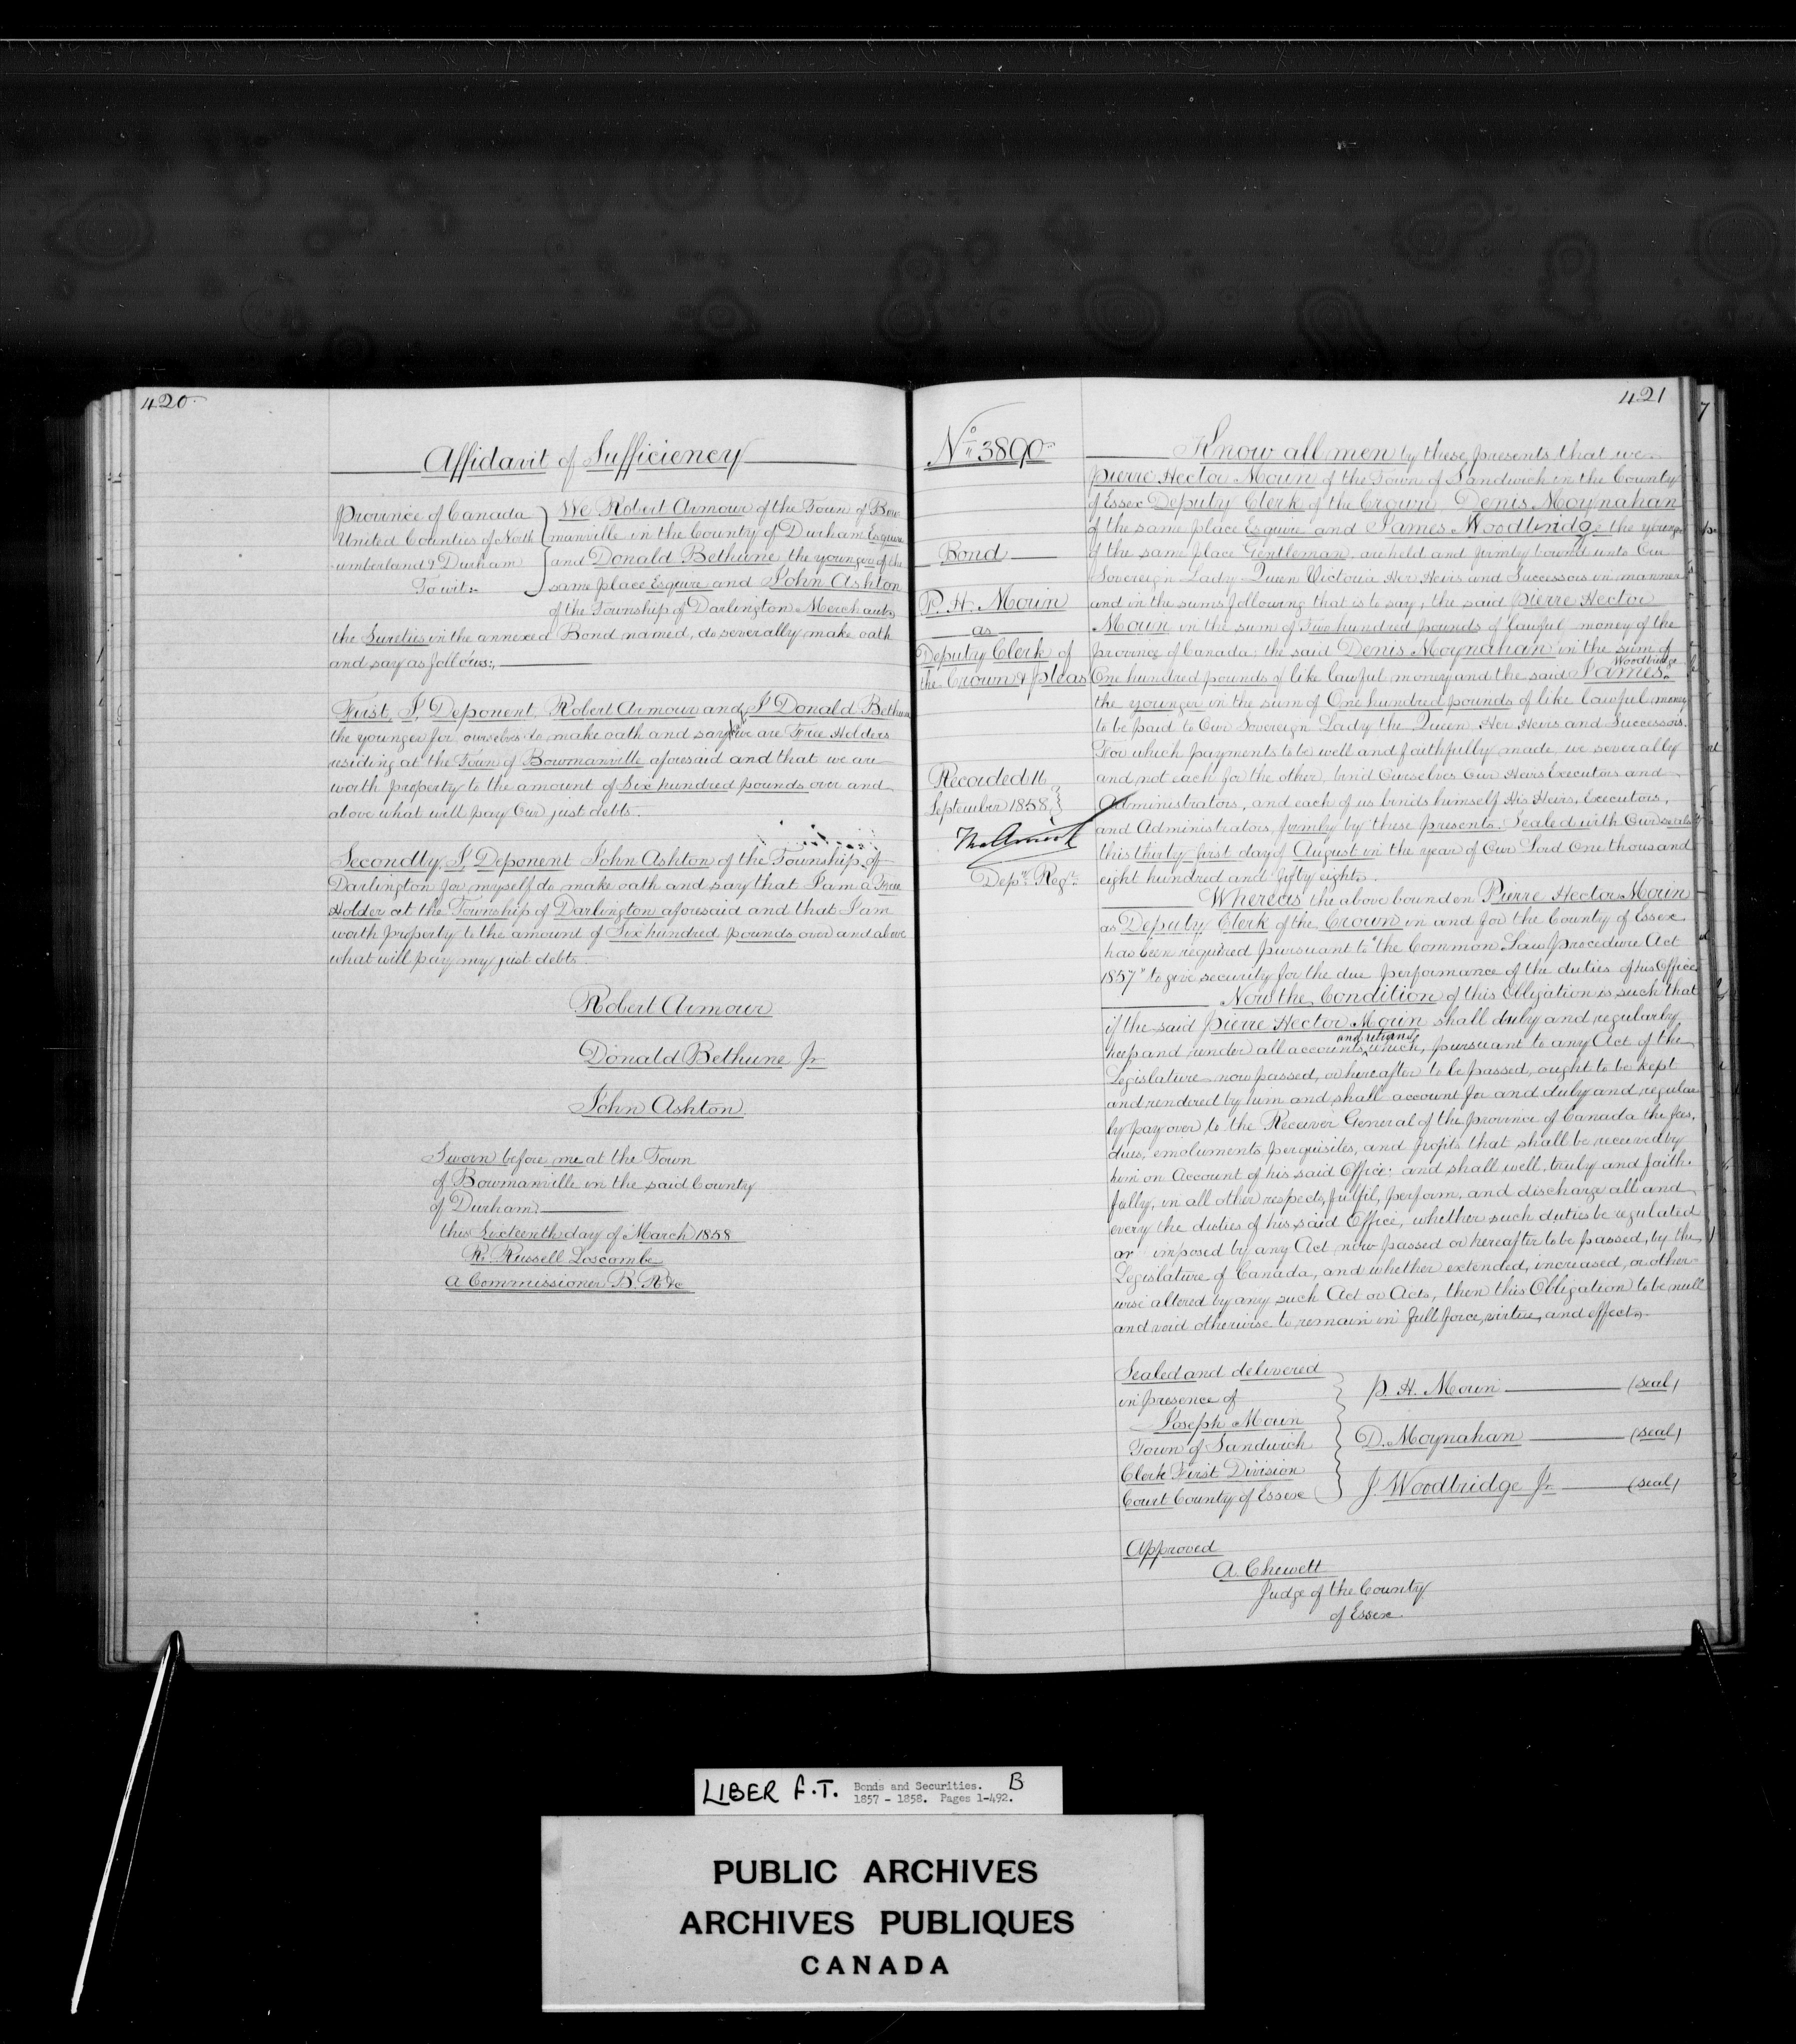 420
Affidavit of Sufficiency
Province of Canada
United Counties of North
umberland & Durham
To wit:
We Robert Armour of the Town of Bow
manville in the County of Durham Esquire
and Donald Bethune the younger of the
same place Esquire and John Ashton
of the Township of Darlington Merchant
the Sureties in the annexed Bond named, do severally make oath
and say as follows:,
First, I, Deponent, Robert Armour and I Donald Bethune
the younger for ourselves do make oath and say we are Free Holders
residing at the Town of Bowmanville aforesaid and that we are
worth property to the amount of Six hundred pounds over and
above what will pay Our just debts.
Secondly I, Deponent John Ashton of the Township of
Darlington for myself do make oath and say that I am a Free
Holder at the Township of Darlington aforesaid and that I am
worth property to the amount of Six hundred pounds over and above
what will pay my just debts
Robert Armour
Donald Bethune Jr
John Ashton
Sworn before me at the Town
of Bowmanville in the said County
of Durham
this Sixteenth day of March 1858
R. Russell Loscombe
A Commissioner B. R &c
421
No. 3890
Bond
P. H. Morin
as
Deputy Clerk of
the Crown & Pleas
Recorded 11
September 1858
Depy. Regr.
Know all men by these presents that we
Pierre Hector Morin of the Town of Sandwich in the County
of Essex Deputy Clerk of the Crown Denis Moynahan
of the same place Esquire and James Woodbridge the younger
of the same place Gentleman are held and firmly bound unto Our
Sovereign Lady Queen Victoria Her Heirs and Successors in manner
and in the sums following that is to say, the said Pierre Hector
Morin in the sum of Two hundred pounds of lawful money of the
Province of Canada: the said Denis Moynahan in the sum of
One hundred pounds of like lawful money and the said James Woodbridge
the younger in the sum of One hundred pounds of like lawful money
to be paid to Our Sovereign Lady the Queen, Her Heirs and Successors.
For which payments to be well and faithfully made we severally
and not each for the other, bind Ourselves Our Heirs Executors and
Administrators, and each of us binds himself His Heirs, Executors,
and Administrators, firmly by these presents. Sealed with Our seals
this thirty first day of August in the year of Our Lord One thousand
eight hundred and fifty eight.
Whereas the above bounden Pierre Hector Morin
as Deputy Clerk of the Crown in and for the County of Essex
has been required pursuant to "the Common Law Procedure Act
1857" to give security for the due performance of the duties of his Office
Now the Condition of this Obligation is such that
if the said Pierre Hector Morin shall duly and regularly
keep and render all accounts and returns which, pursuant to any Act of the
Legislature now passed, or hereafter to be passed, ought to be kept
and rendered by him and shall account for and duly and regular
ly pay over to the Receiver General of the Province of Canada the fees,
dues, emoluments, perquisites, and profits that shall be received by
him on Account of his said Office: and shall well, truly and faith-
fully, in all other respects, fulfil, perform, and discharge all and
every the duties of his said Office, whether such duties be regulated
or imposed by any Act now passed or hereafter to be passed, by the
Legislature of Canada, and whether extended, increased, or other-
wise altered by any such Act or Acts, then this Obligation to be null
and void otherwise to remain in full force, virtue, and effect.
Sealed and delivered
in presence of
Joseph Morin
Town of Sandwich
Clerk First Division
Court County of Essex
P. H. Morin (seal)
D. Moynahan (seal)
J. Woodbridge Jr. (seal)
Approved
A. Chewett
Judge of the County
of Essex
LIBER F.T. Bonds and Securities. B
1857 - 1858. Pages 1-492.
PUBLIC ARCHIVES
ARCHIVES PUBLIQUES
CANADA